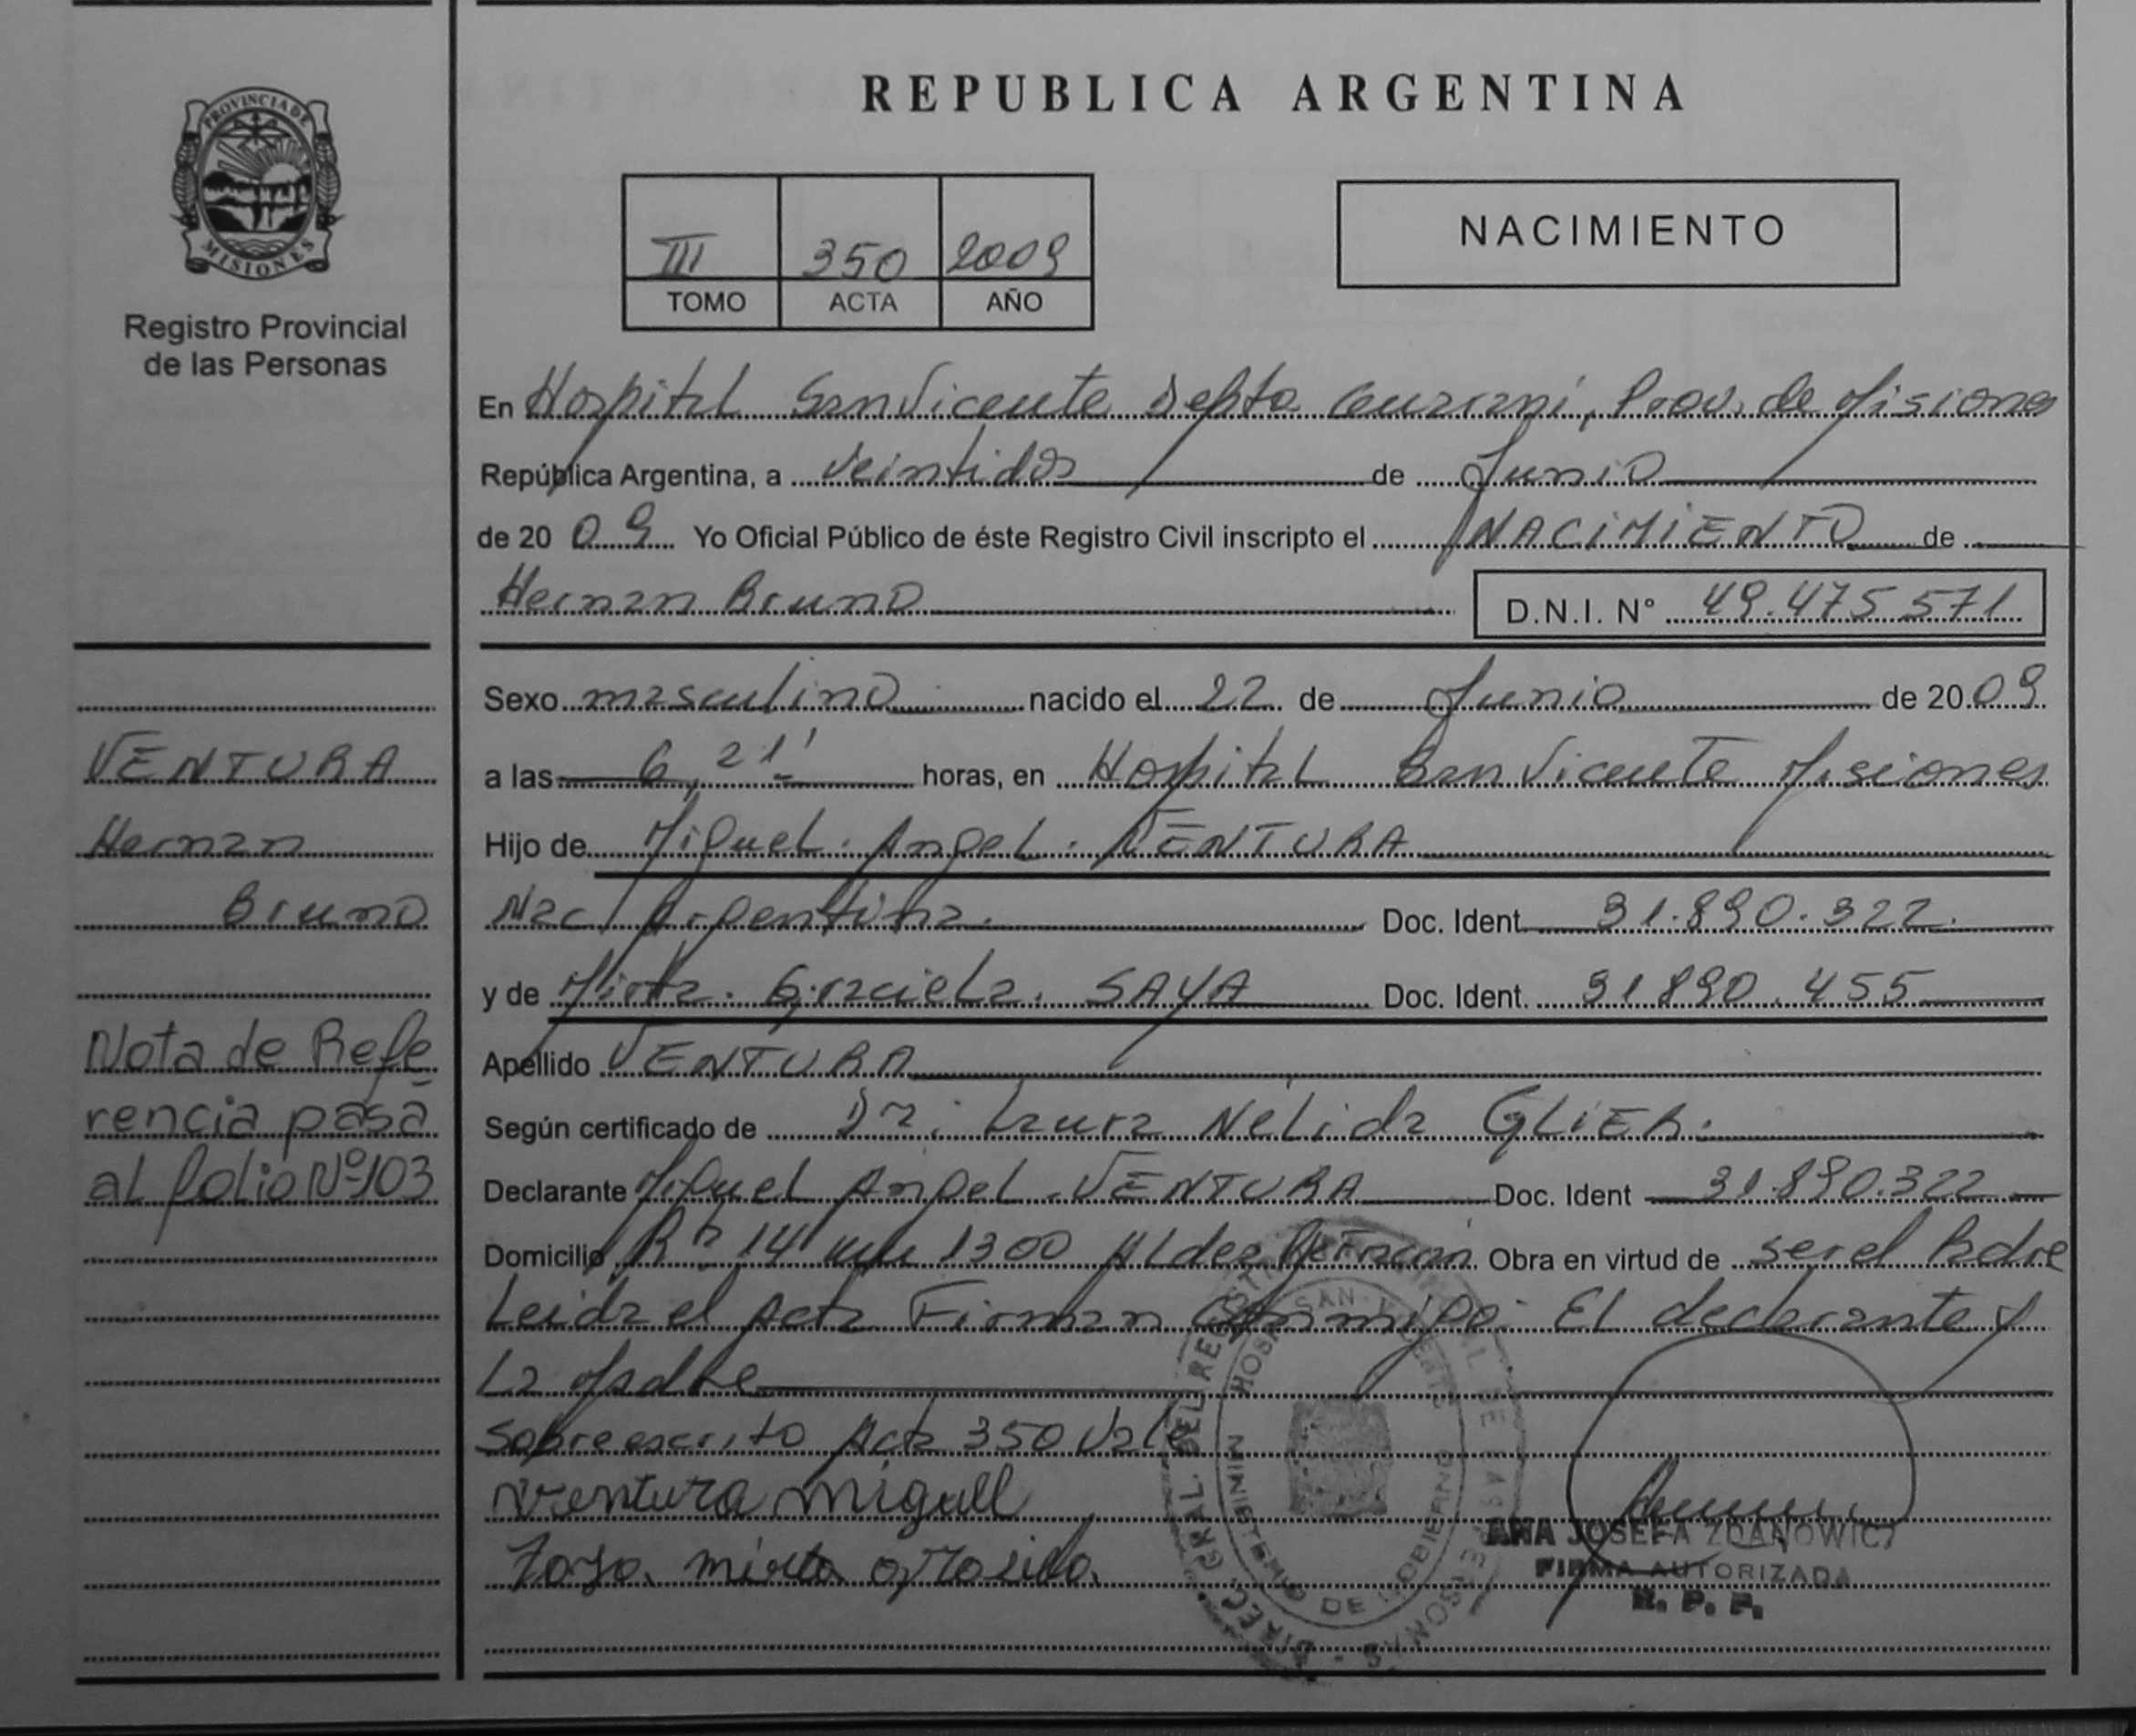 REPUBLICA ARGENTINA
PROVINCIA DE
MISIONES
Registro Provincial
de las Personas
III 350 2009
TOMO ACTA AÑO
NACIMIENTO
En Hospital San Vicente Depto Guarani, Prov. de Misiones
República Argentina, a veintidos de Junio
de 20 09 Yo Oficial Público de éste Registro Civil inscripto el NACIMIENTO de
Hernan Bruno D.N.I. N° 49.475 571
Sexo masculino nacido el 22 de Junio de 20 09
a las 6,21' horas, en Hospital San Vicente Misiones
Hijo de Miguel Angel VENTURA
Nac Argentina Doc. Ident 31.890.322
y de Mirta Graciela SAYA Doc. Ident. 31890.455
Apellido VENTURA
Según certificado de Dra. Laura Nelida GLIER
Declarante Miguel Angel VENTURA Doc. Ident 31.890.322
Domicilio 14 km 1300 Aldea Obra en virtud de ser el Padre
Leida el Acta Firman Conmigo: El declarante y
La Madre
Sobreescrito Acta 350 Vale
ventura miguel
mirta
VENTURA
Hernan
Bruno
Nota de Refe
rencia pasa
al folio Nº 103
DIREC. GRAL. DEL REGISTRO PROVINCIAL DE LAS PERSONAS
HOSP. SAN VICENTE
MINISTERIO DE GOBIERNO
ANA JOSEFA ZDANOWICZ
FIRMA AUTORIZADA
R. P. P.